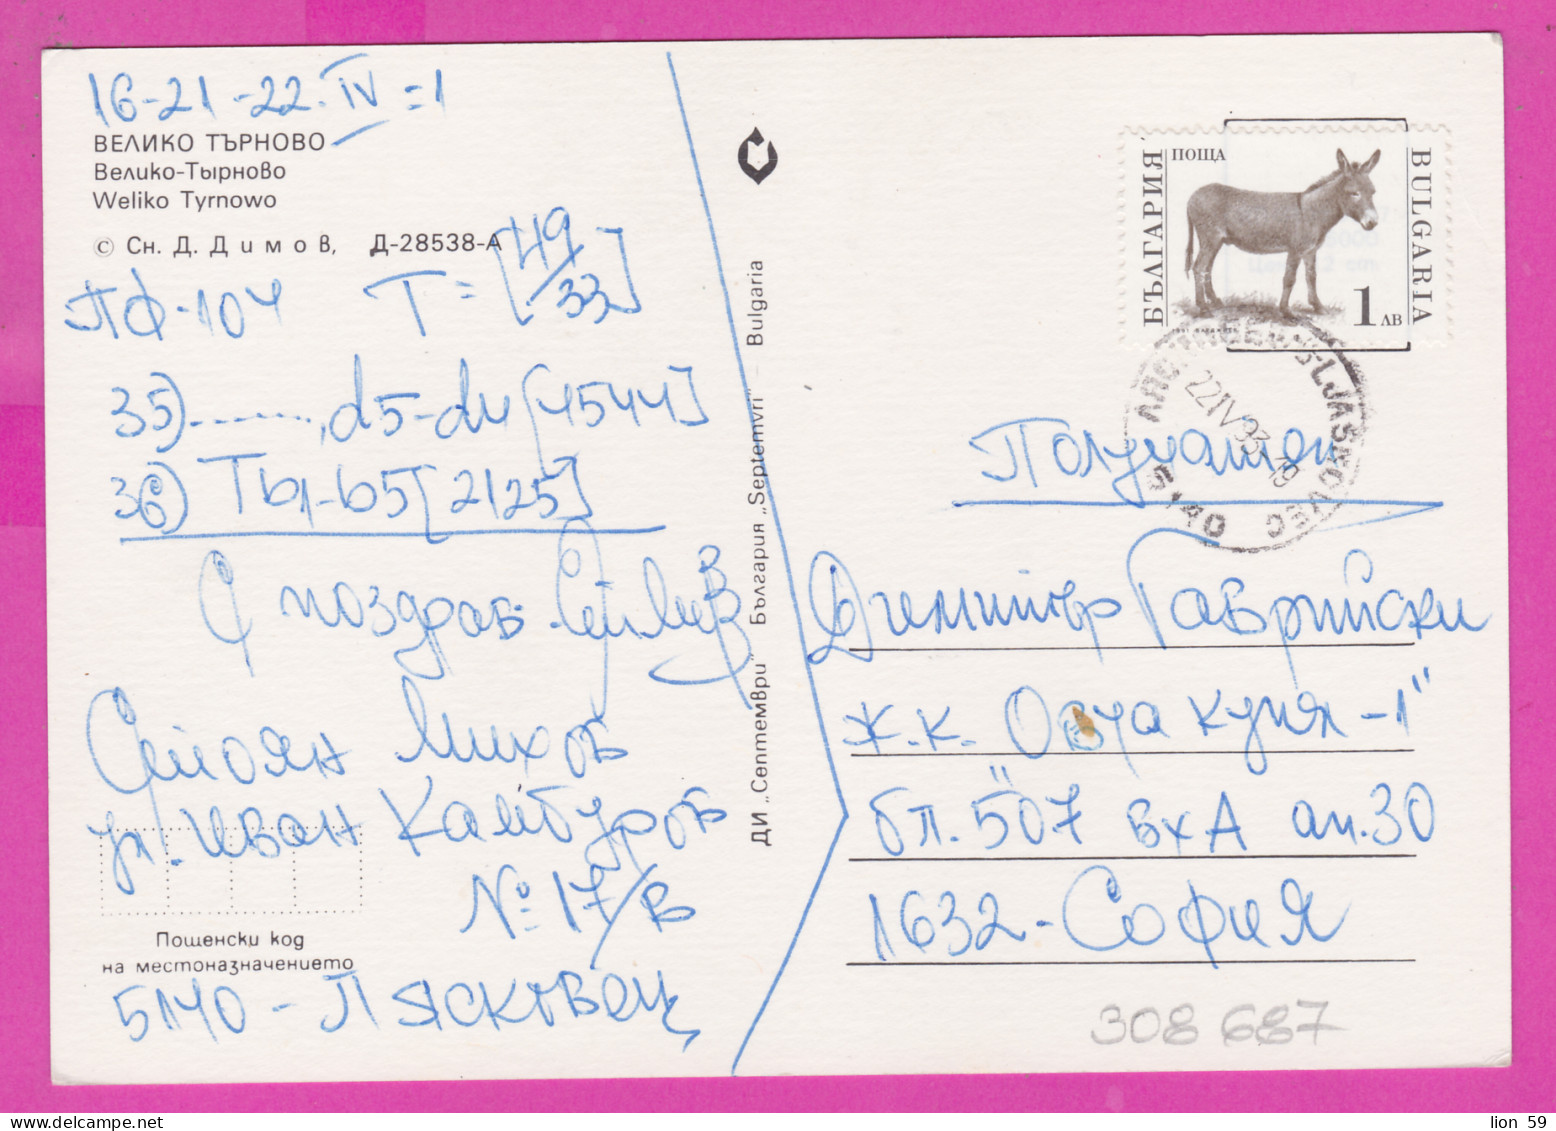 16-21-22.IV=1
ВЕЛИКО ТЪРНОВО
Велико-Тырново
Weliko Tyrnowo
© Сн. Д. Димов, Д-28538-А
ПФ-104 T=[49/33]
35)........, d5-d4 [4544]
36) Тb1-b5 [2125]
С поздрав:
Стоян Михов
ул. Иван Камбуров
№ 17/В
Пощенски код
на местоназначението
5140 - Лясковец
ДИ „Септември" България „Septemvri" Bulgaria
БЪЛГАРИЯ
ПОЩА
BULGARIA
1 ЛВ
LJASKOVEC
22 IV 93-19
5140
Получател
Димитър Гаврийски
ж.к. Овча купел -1"
бл. 507 вх А ап. 30
1632 - София
308 687
lion 59